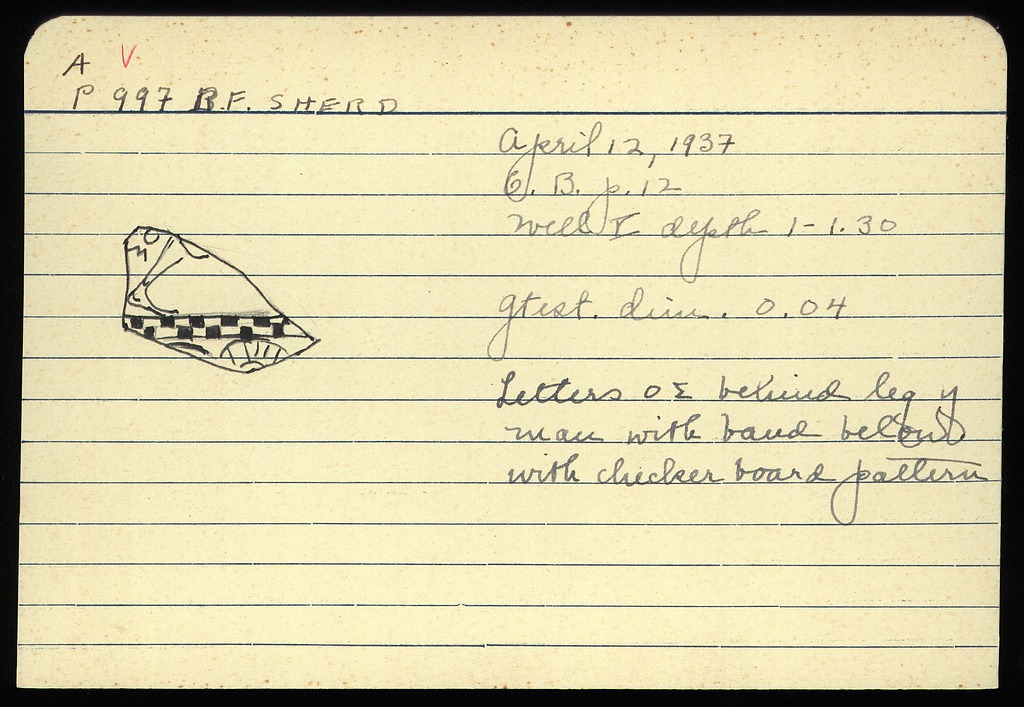 A V
P 997 B.F. SHERD
April 12, 1937
B. p. 12
Well I depth 1-1.30
gtest. dim. 0.04
Letters ΟΣ behind leg of
man with band below
with checker board pattern
ΟΣ